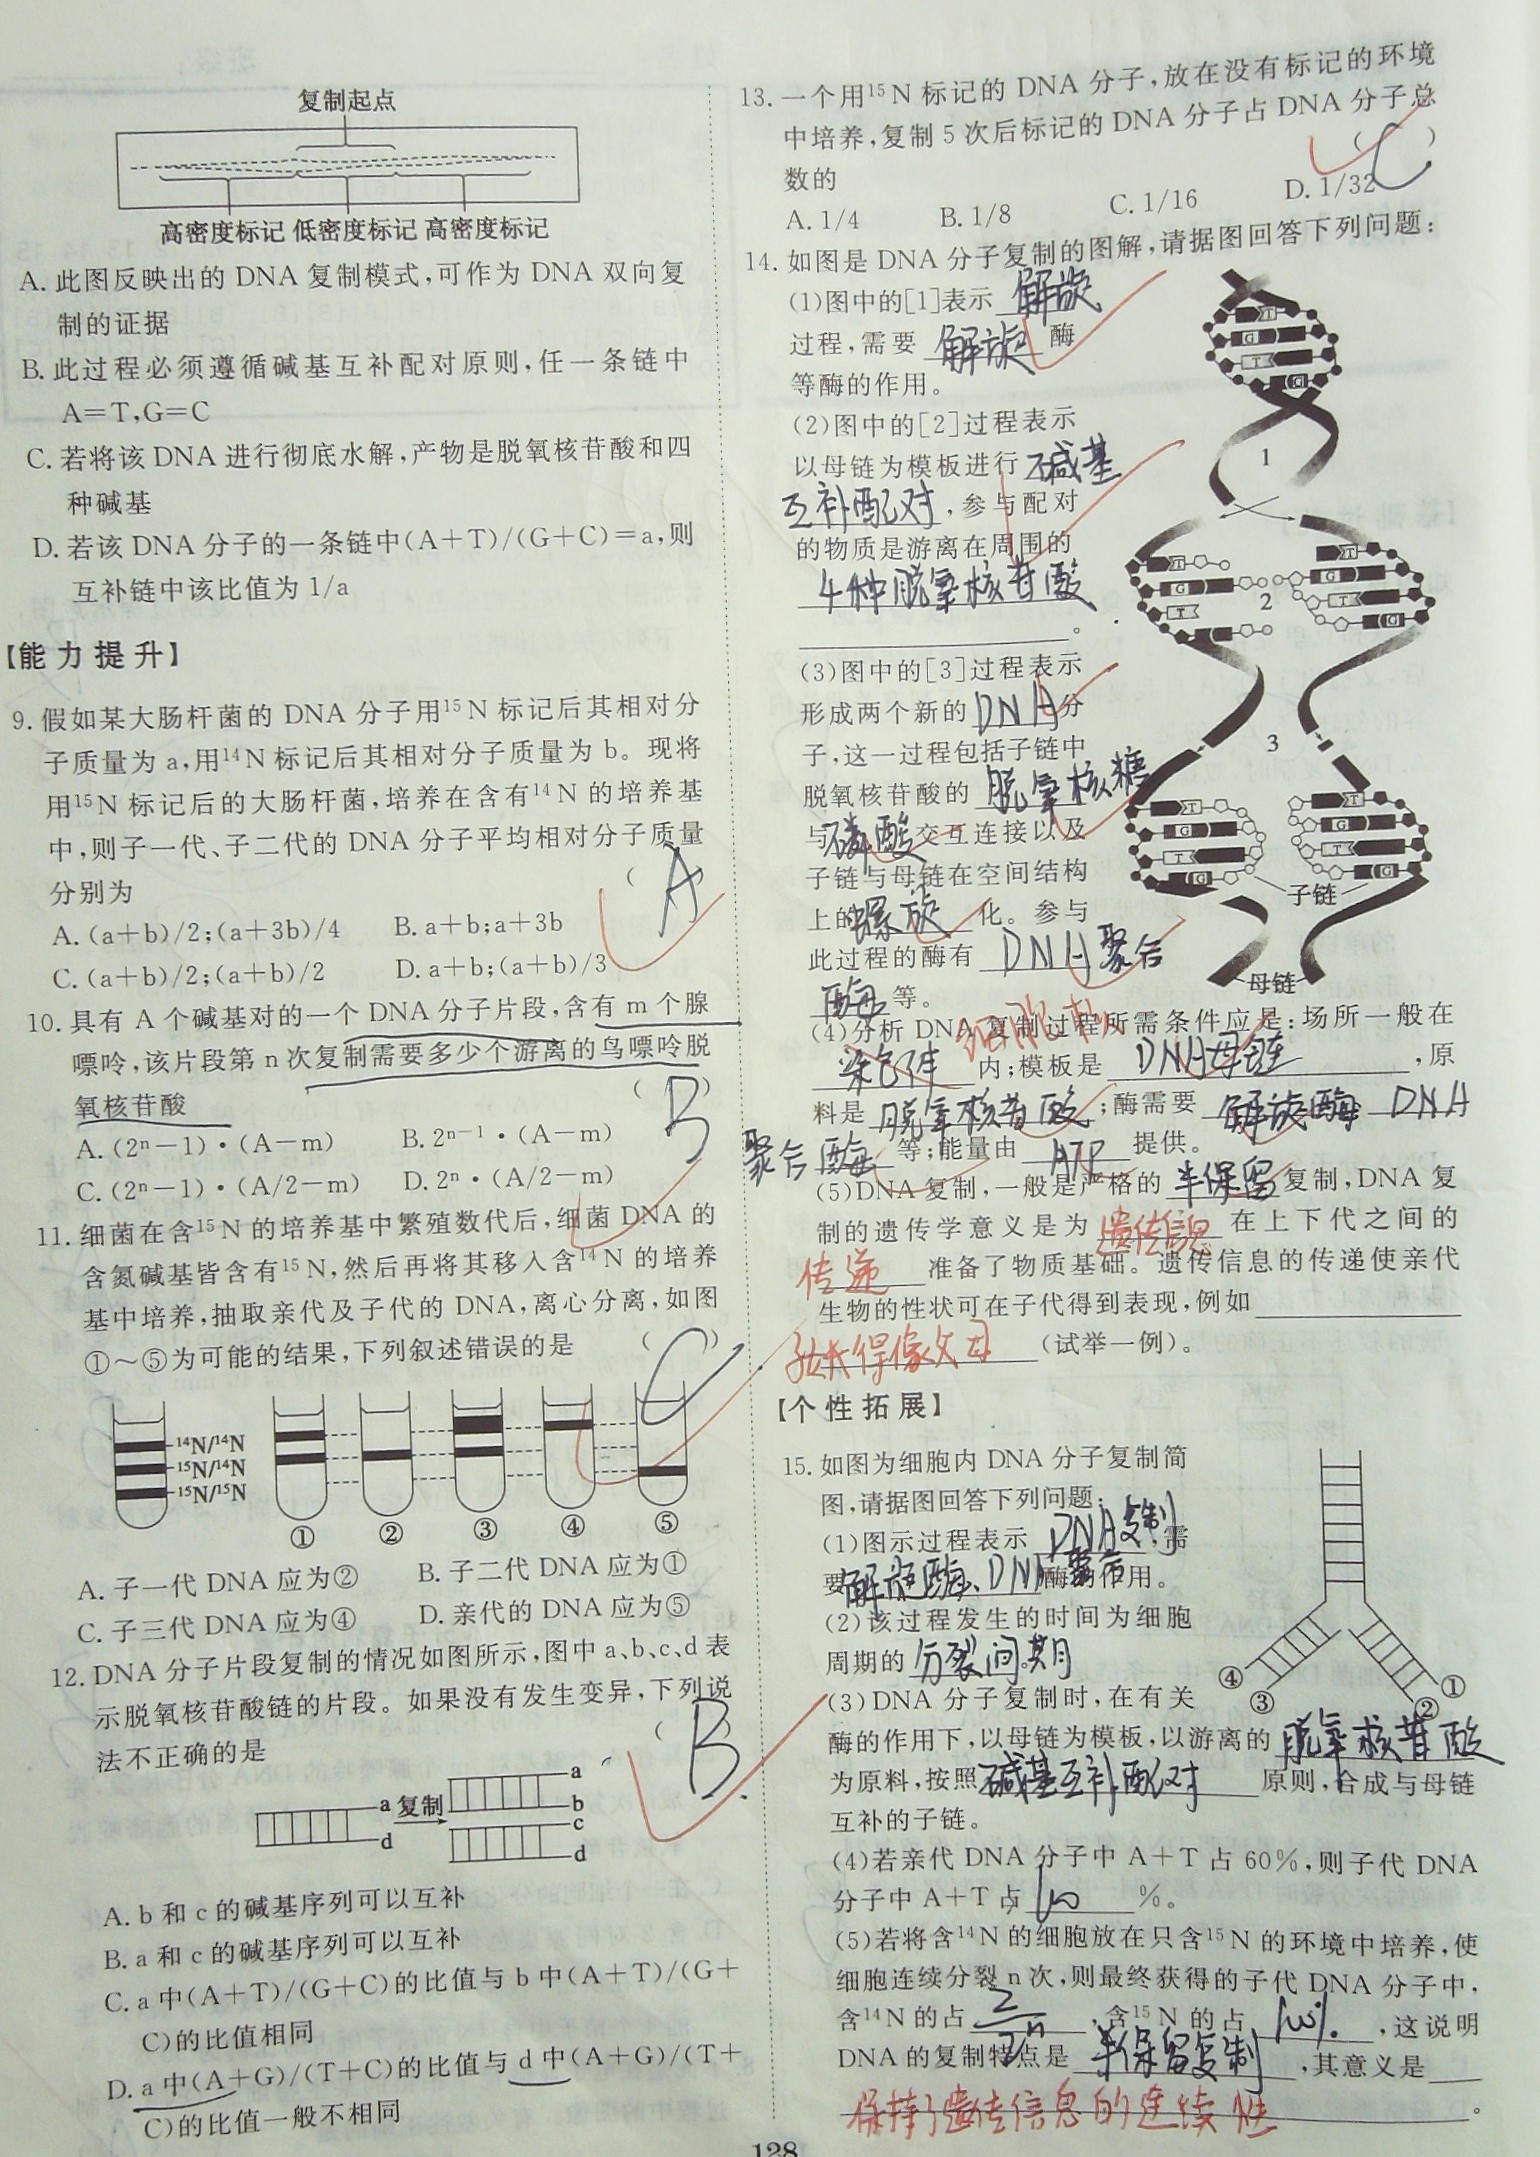 复制起点
高密度标记 低密度标记 高密度标记
A. 此图反映出的 DNA 复制模式,可作为 DNA 双向复
制的证据
B. 此过程必须遵循碱基互补配对原则,任一条链中
A=T,G=C
C. 若将该 DNA 进行彻底水解,产物是脱氧核苷酸和四
种碱基
D. 若该 DNA 分子的一条链中(A+T)/(G+C)=a,则
互补链中该比值为 1/a
【能力提升】
9. 假如某大肠杆菌的 DNA 分子用¹⁵N 标记后其相对分
子质量为 a,用¹⁴N 标记后其相对分子质量为 b。现将
用¹⁵N 标记后的大肠杆菌,培养在含有¹⁴N 的培养基
中,则子一代、子二代的 DNA 分子平均相对分子质量
分别为 ( A )
A. (a+b)/2;(a+3b)/4 B. a+b;a+3b
C. (a+b)/2;(a+b)/2 D. a+b;(a+b)/3
10. 具有 A 个碱基对的一个 DNA 分子片段,含有 m 个腺
嘌呤,该片段第 n 次复制需要多少个游离的鸟嘌呤脱
氧核苷酸 ( B )
A. (2ⁿ-1)·(A-m) B. 2ⁿ⁻¹·(A-m)
C. (2ⁿ-1)·(A/2-m) D. 2ⁿ·(A/2-m)
11. 细菌在含¹⁵N 的培养基中繁殖数代后,细菌 DNA 的
含氮碱基皆含有¹⁵N,然后再将其移入含¹⁴N 的培养
基中培养,抽取亲代及子代的 DNA,离心分离,如图
①~⑤为可能的结果,下列叙述错误的是 ( C )
¹⁴N/¹⁴N
¹⁵N/¹⁴N
¹⁵N/¹⁵N
① ② ③ ④ ⑤
A. 子一代 DNA 应为② B. 子二代 DNA 应为①
C. 子三代 DNA 应为④ D. 亲代的 DNA 应为⑤
12. DNA 分子片段复制的情况如图所示,图中 a、b、c、d 表
示脱氧核苷酸链的片段。如果没有发生变异,下列说
法不正确的是 ( B )
a
d
复制
a
b
c
d
A. b 和 c 的碱基序列可以互补
B. a 和 c 的碱基序列可以互补
C. a 中(A+T)/(G+C)的比值与 b 中(A+T)/(G+
C)的比值相同
D. a 中(A+G)/(T+C)的比值与 d 中(A+G)/(T+
C)的比值一般不相同
13. 一个用¹⁵N 标记的 DNA 分子,放在没有标记的环境
中培养,复制 5 次后标记的 DNA 分子占 DNA 分子总
数的 ( C )
A. 1/4 B. 1/8 C. 1/16 D. 1/32
14. 如图是 DNA 分子复制的图解,请据图回答下列问题:
(1)图中的[1]表示 解旋
过程,需要 解旋 酶
等酶的作用。
(2)图中的[2]过程表示
以母链为模板进行 碱基
互补配对,参与配对
的物质是游离在周围的
4种脱氧核苷酸
。
(3)图中的[3]过程表示
形成两个新的 DNA 分
子,这一过程包括子链中
脱氧核苷酸的 脱氧核糖
与 磷酸 交互连接以及
子链与母链在空间结构
上的 螺旋 化。参与
此过程的酶有 DNA聚合
酶 等。
1
2
3
子链
母链
细胞核
(4)分析 DNA 复制过程所需条件应是:场所一般在
染色体 内;模板是 DNA母链 ,原
料是 脱氧核苷酸 ;酶需要 解旋酶 DNA
聚合酶 等;能量由 ATP 提供。
(5)DNA 复制,一般是严格的 半保留 复制,DNA 复
制的遗传学意义是为 遗传信息 在上下代之间的
传递 准备了物质基础。遗传信息的传递使亲代
生物的性状可在子代得到表现,例如
孩子长得像父母 (试举一例)。
【个性拓展】
15. 如图为细胞内 DNA 分子复制简
图,请据图回答下列问题:
(1)图示过程表示 DNA复制,需
要 解旋酶、DNA聚合 酶的作用。
(2)该过程发生的时间为细胞
周期的 分裂间期
(3)DNA 分子复制时,在有关
酶的作用下,以母链为模板,以游离的 脱氧核苷酸
为原料,按照 碱基互补配对 原则,合成与母链
互补的子链。
④
③
①
②
(4)若亲代 DNA 分子中 A+T 占 60%,则子代 DNA
分子中 A+T 占 60 %。
(5)若将含¹⁴N 的细胞放在只含¹⁵N 的环境中培养,使
细胞连续分裂 n 次,则最终获得的子代 DNA 分子中,
含¹⁴N 的占 2/2ⁿ ,含¹⁵N 的占 100% ,这说明
DNA 的复制特点是 半保留复制 ,其意义是
保持了遗传信息的连续性 。
128